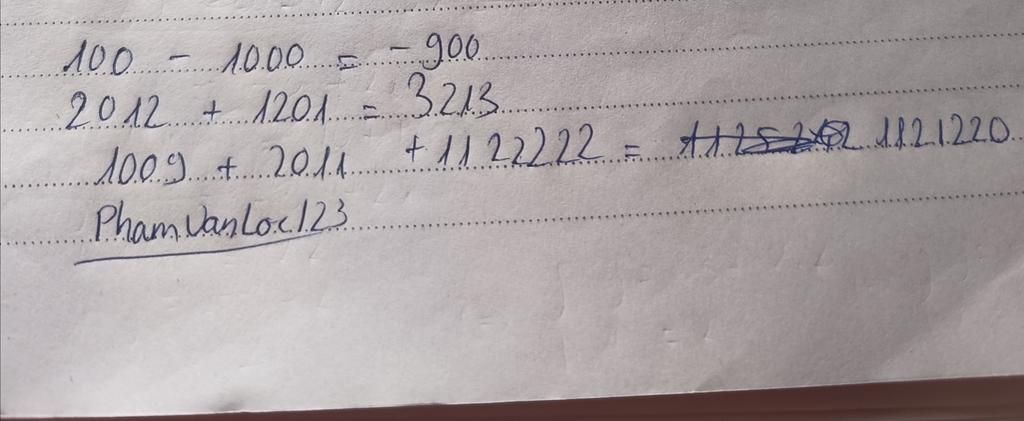 100 - 1000 = -900
2012 + 1201 = 3213
1009 + 2011 + 1122222 = 1121220
PhamVanLoc123